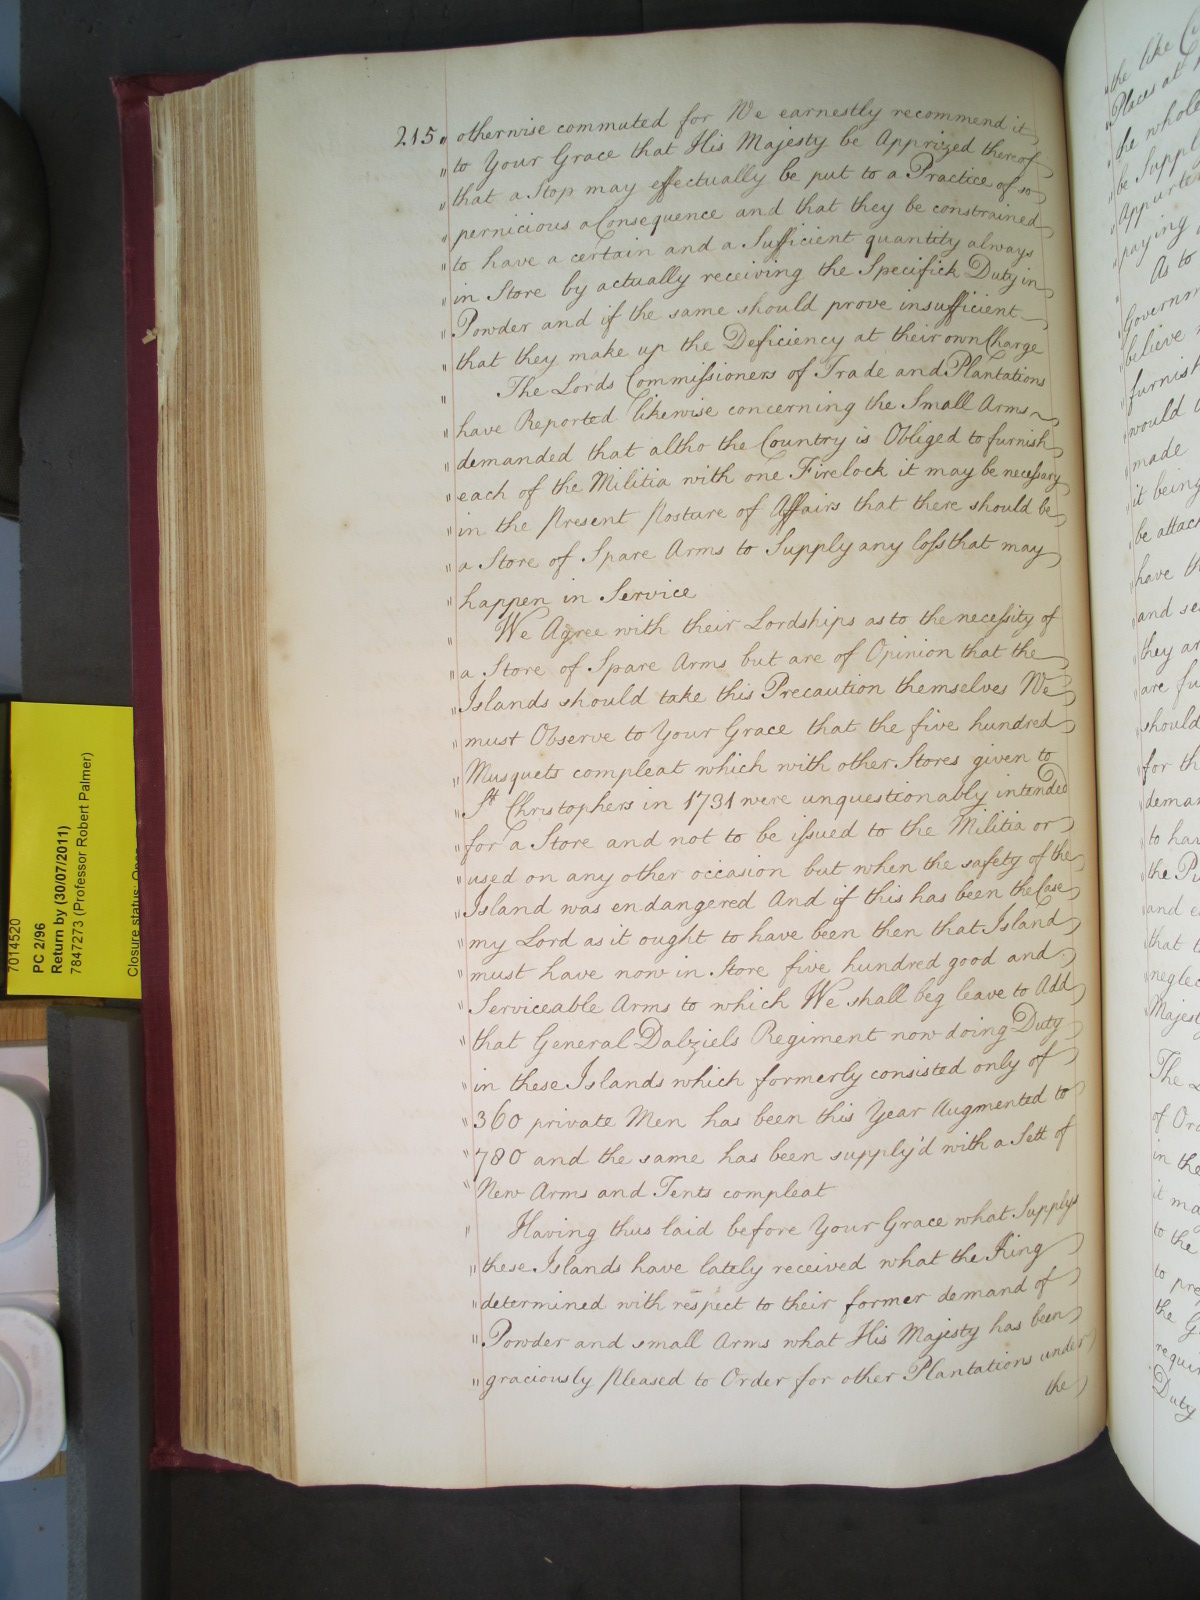 215. " otherwise commuted for We earnestly recommend it
" to Your Grace that His Majesty be Apprized thereof
" that a Stop may effectually be put to a Practice of so
" pernicious a Consequence and that they be constrained
" to have a certain and a Sufficient quantity always
" in Store by actually receiving the Specifick Duty in
" Powder and if the same should prove insufficient
" that they make up the Deficiency at their own Charge
" The Lords Commissioners of Trade and Plantations
" have Reported likewise concerning the Small Arms
" demanded that altho the Country is Obliged to furnish
" each of the Militia with one Firelock it may be necessary
" in the Present Posture of Affairs that there should be
" a Store of Spare Arms to Supply any loss that may
" happen in Service
" We Agree with their Lordships as to the necessity of
" a Store of Spare Arms but are of Opinion that the
" Islands should take this Precaution themselves We
" must Observe to Your Grace that the five hundred
" Musquets compleat which with other Stores given to
" St Christophers in 1731 were unquestionably intended
" for a Store and not to be issued to the Militia or
" used on any other occasion but when the safety of the
" Island was endangered And if this has been the Case
" my Lord as it ought to have been then that Island
" must have now in Store five hundred good and
" Serviceable Arms to which We shall beg leave to Add
" that General Dalziels Regiment now doing Duty
" in these Islands which formerly consisted only of
" 360 private Men has been this Year Augmented to
" 780 and the same has been supply'd with a Sett of
" New Arms and Tents compleat
" Having thus laid before Your Grace what Supplys
" these Islands have lately received what the King
" determined with respect to their former demand of
" Powder and small Arms what His Majesty has been
" graciously Pleased to Order for other Plantations under
the
the like
Places at
the whole
be Suppl
Apparte
paying
As to
Governm
believe
furnish
would
made
it being
be attac
have th
and se
they ar
are fu
should
for th
deman
to hav
the
and e
that t
neglec
Majest
The
of Or
in the
it ma
to the
to pre
the
requi
Duty
7014520
PC 2/96
Return by (30/07/2011)
7847273 (Professor Robert Palmer)
Closure status: Open